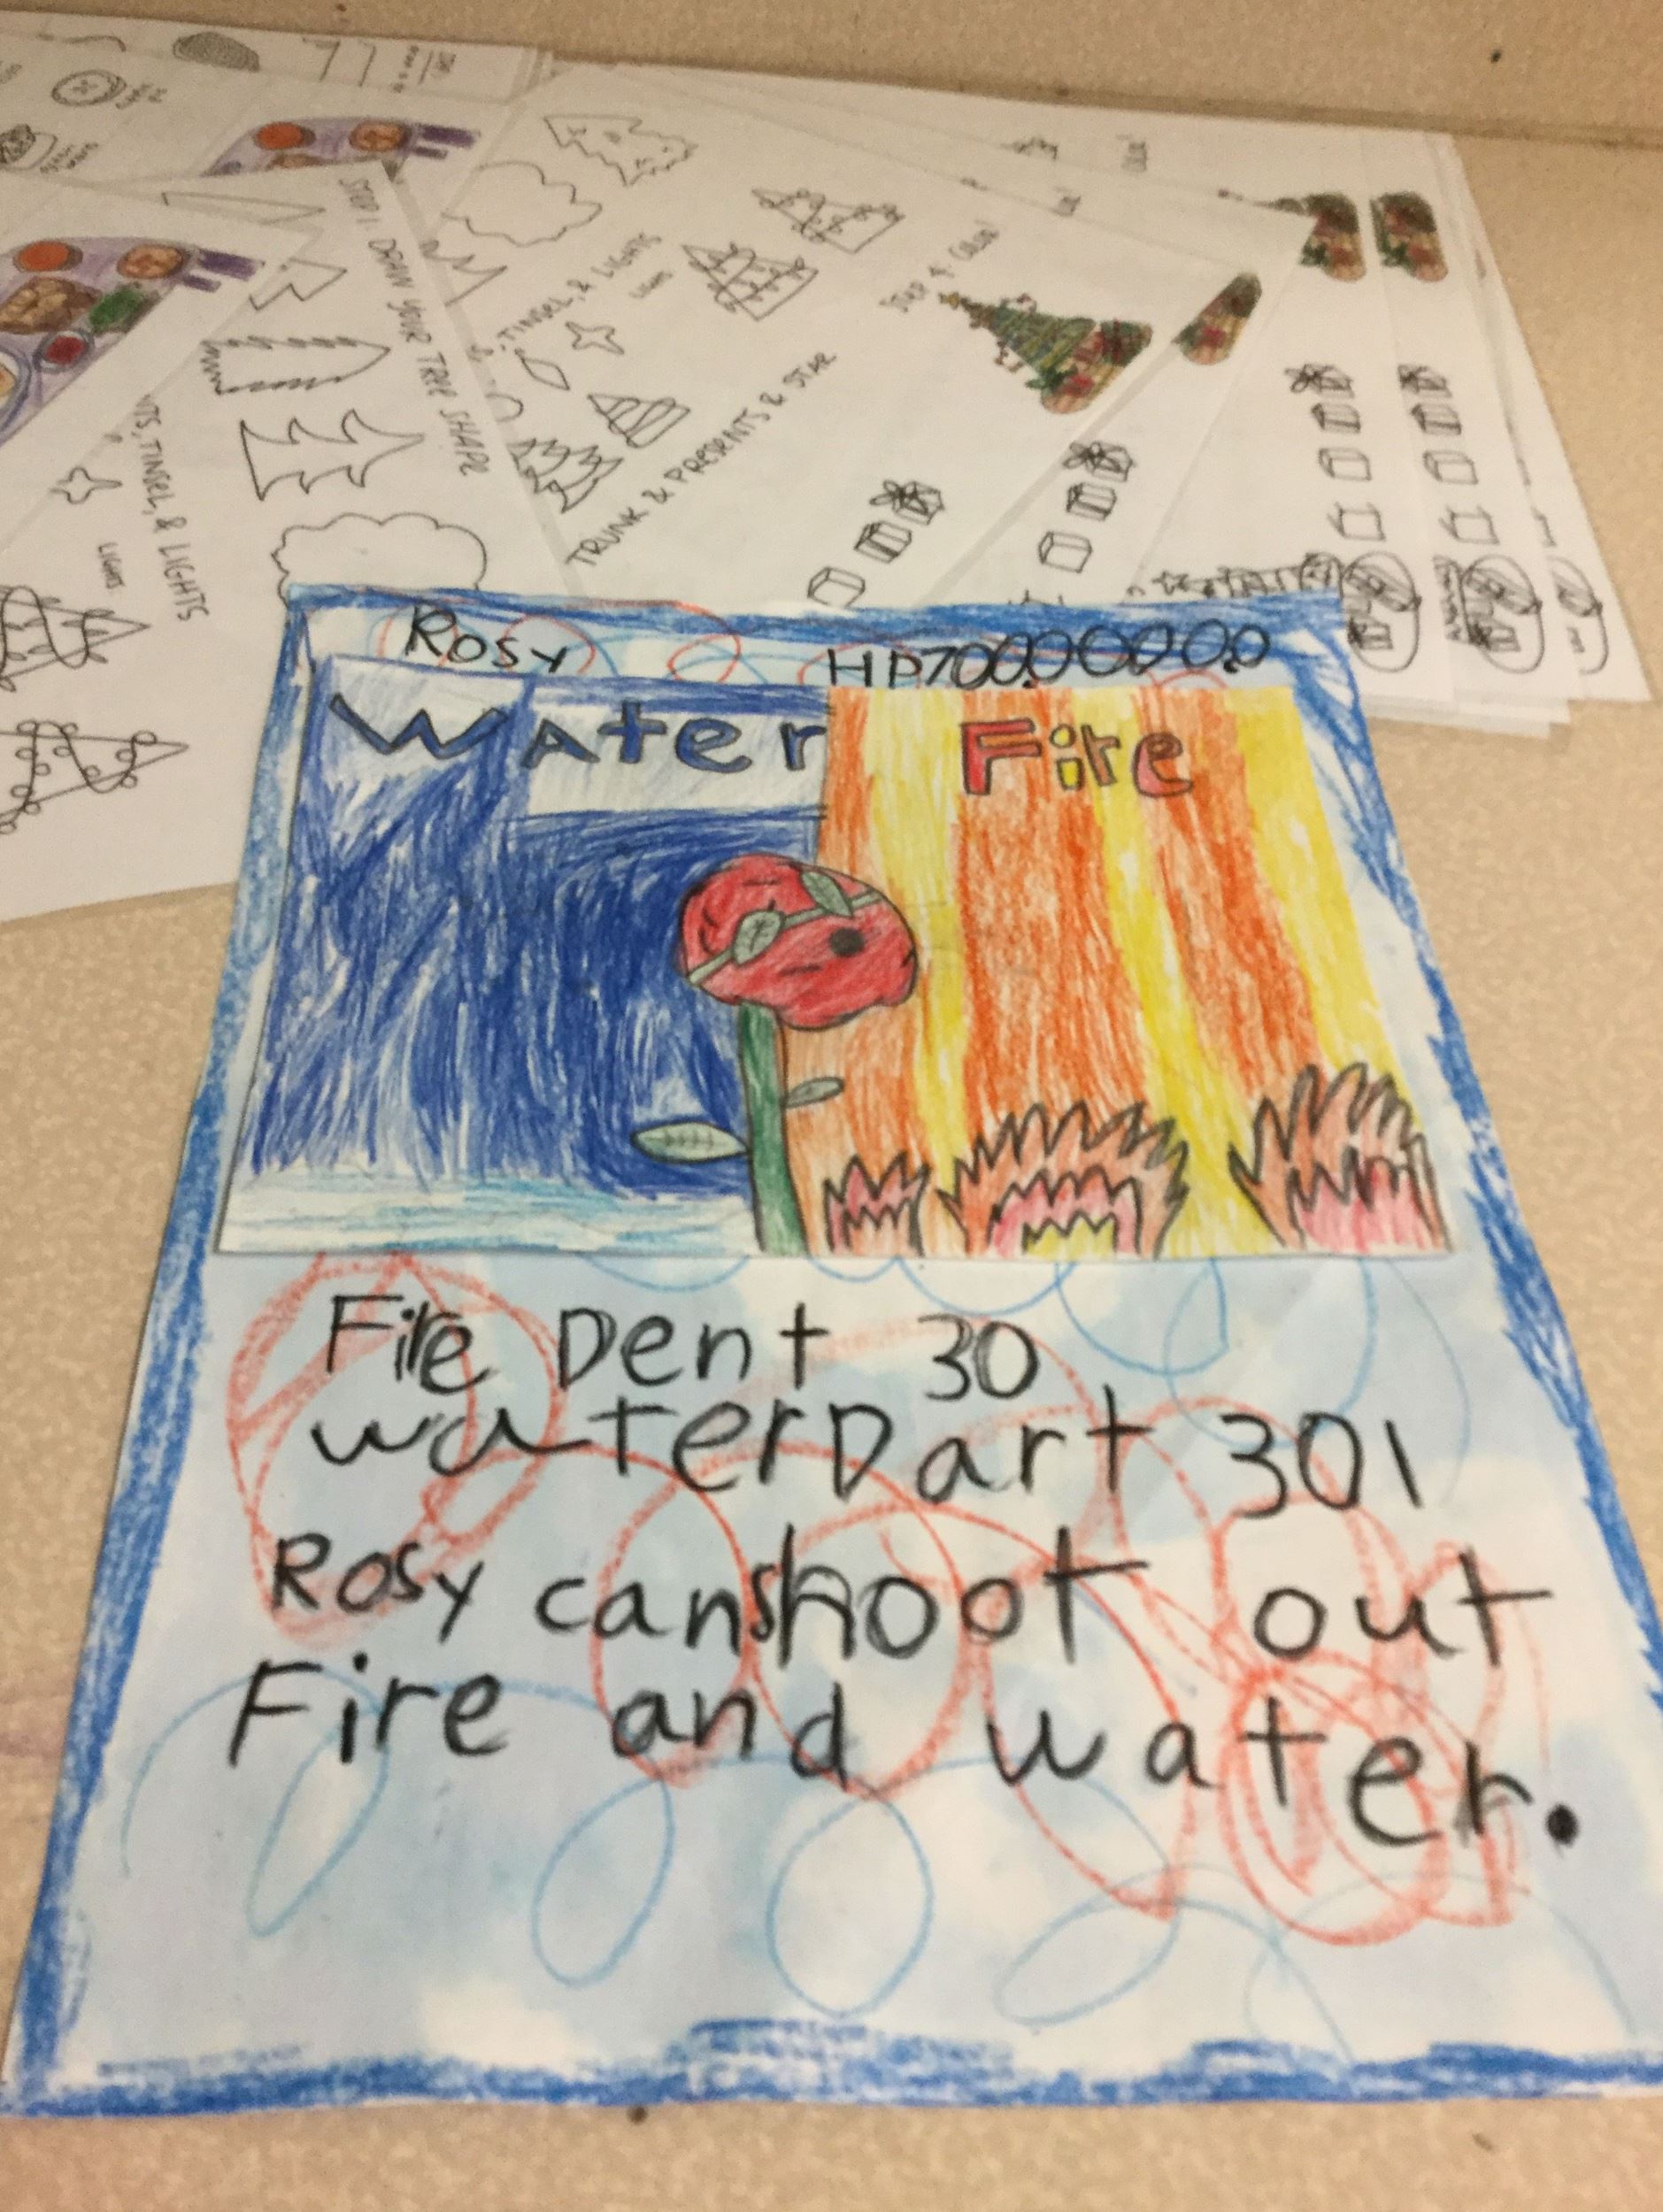 STEP 1: DRAW YOUR TREE SHAPE
TINSEL, & LIGHTS
LIGHTS
TRUNK & PRESENTS & STAR
STEP 4 COLOR!
TINSEL, & LIGHTS
LIGHTS
Rosy HP700,000,00,0
Water Fire
Fire Dent 30
waterDart 301
Rosy canshoot out
Fire and water.